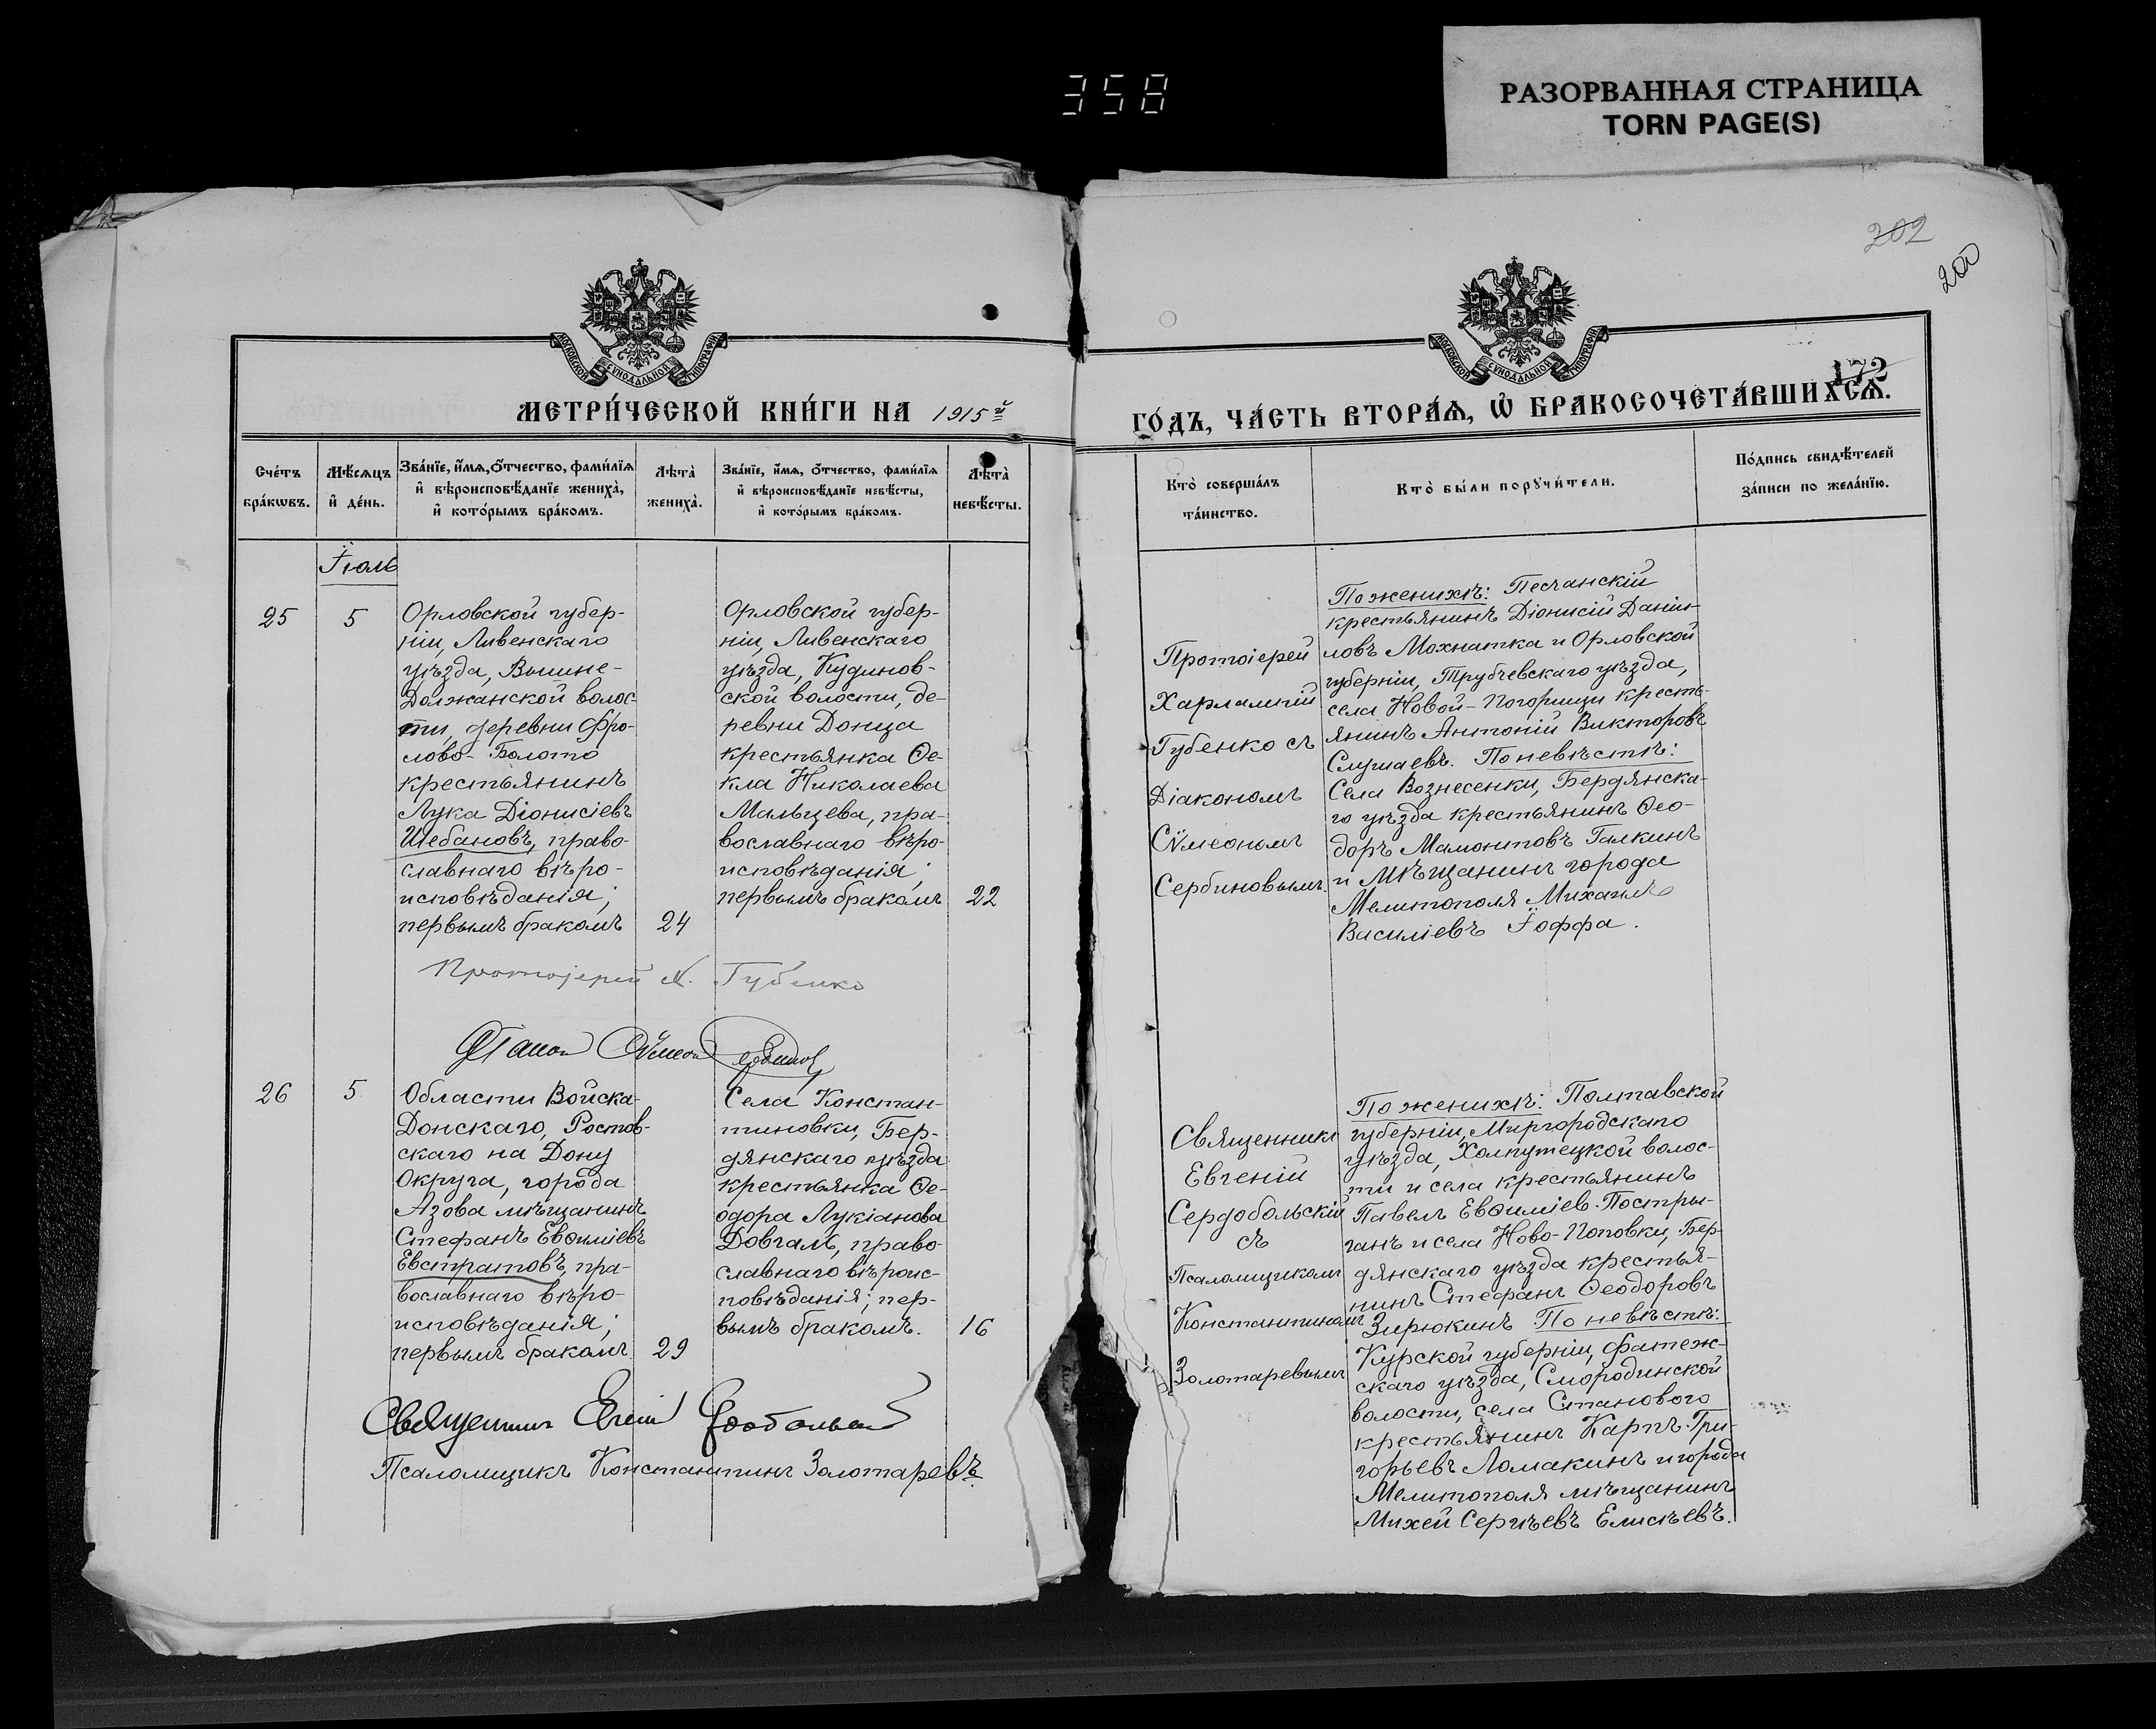 358
РАЗОРВАННАЯ СТРАНИЦА
TORN PAGE(S)
202
200
172
МОСКОВСКОЙ СѴНОДАЛЬНОЙ ТИПОГРАФІИ
МОСКОВСКОЙ СѴНОДАЛЬНОЙ ТИПОГРАФІИ
МЕТРИ́ЧЕСКОЙ КНИ́ГИ НА 1915й
ГО́ДЪ, ЧА́СТЬ ВТОРА́Ѧ, Ѡ҆ БРАКОСОЧЕТА́ВШИХСѦ.
Сче́тъ бра́кѡвъ.
Мѣ́сѧцъ и҆ де́нь.
Зва́нїе, и҆́мѧ, ѻ҆́тчество, фами́лїѧ
и҆ вѣроисповѣ́данїе жениха̀,
и҆ кото́рымъ бра́комъ.
Лѣта̀ жениха̀.
Зва́нїе, и҆́мѧ, ѻ҆́тчество, фами́лїѧ
и҆ вѣроисповѣ́данїе невѣ́сты,
и҆ кото́рымъ бра́комъ.
Лѣта̀ невѣ́сты.
Кто̀ соверша́лъ
та́инство.
Кто̀ бы́ли порꙋчи́тели.
По́дпись свидѣ́телей
за́писи по жела́нїю.
Іюль
25
5
Орловской губер-
ніи, Ливенскаго
уѣзда, Вышне-
Должанской волос-
ти, деревни Фро-
лово-Болото
крестьянинъ
Лука Діонисіевъ
Шебановъ, право-
славнаго вѣро-
исповѣданія;
первымъ бракомъ
24
Орловской губер-
ніи, Ливенскаго
уѣзда, Кудинов-
ской волости, де-
ревни Донца
крестьянка Ѳе-
кла Николаева
Мальцева, пра-
вославнаго вѣро-
исповѣданія;
первымъ бракомъ
22
Протоіерей
Харлампій
Губенко съ
Діакономъ
Сѵмеономъ
Сербиновымъ.
По женихѣ: Песчанскій
крестьянинъ Діонисій Даніи-
ловъ Мохнатка и Орловской
губерніи, Трубчевскаго уѣзда,
села Новой-Погорищи кресть-
янинъ Антоній Викторовъ
Слушаевъ. По невѣстѣ:
Села Вознесенки, Бердянска-
го уѣзда крестьянинъ Ѳео-
доръ Мамонтовъ Галкинъ
и Мѣщанинъ города
Мелитополя Михаилъ
Василіевъ Іоффа.
Протоіерей Х. Губенко
Діаконъ Сѵмеонъ Сербиновъ
26
5
Области Войска
Донскаго, Ростов-
скаго на Дону
Округа, города
Азова мѣщанинъ
Стефанъ Евѳиміевъ
Евстратовъ, пра-
вославнаго вѣро-
исповѣданія;
первымъ бракомъ.
29
Села Констан-
тиновки, Бер-
дянскаго уѣзда
крестьянка Ѳе-
одора Лукіанова
Довгаль, право-
славнаго вѣроис-
повѣданія; пер-
вымъ бракомъ.
16
Священникъ
Евгеній
Сердобольскій
съ
Псаломщикомъ
Константиномъ
Золотаревымъ
По женихѣ: Полтавской
губерніи, Миргородскаго
уѣзда, Хомутецкой волос-
ти и села крестьянинъ
Павелъ Евѳиміев. Постры-
ганъ и села Ново-Поповки, Бер-
дянскаго уѣзда крестья-
нинъ Стефанъ Ѳеодоровъ
Зирюкинъ По невѣстѣ:
Курской губерніи, Фатеж-
скаго уѣзда, Смородинской
волости, села Станового
крестьянинъ Карпъ Гри-
горьевъ Ломакинъ и города
Мелитополя мѣщанинъ
Михей Сергѣевъ Елисѣевъ.
Священникъ Евгеній Сердобольскій
Псаломщикъ Константинъ Золотаревъ.